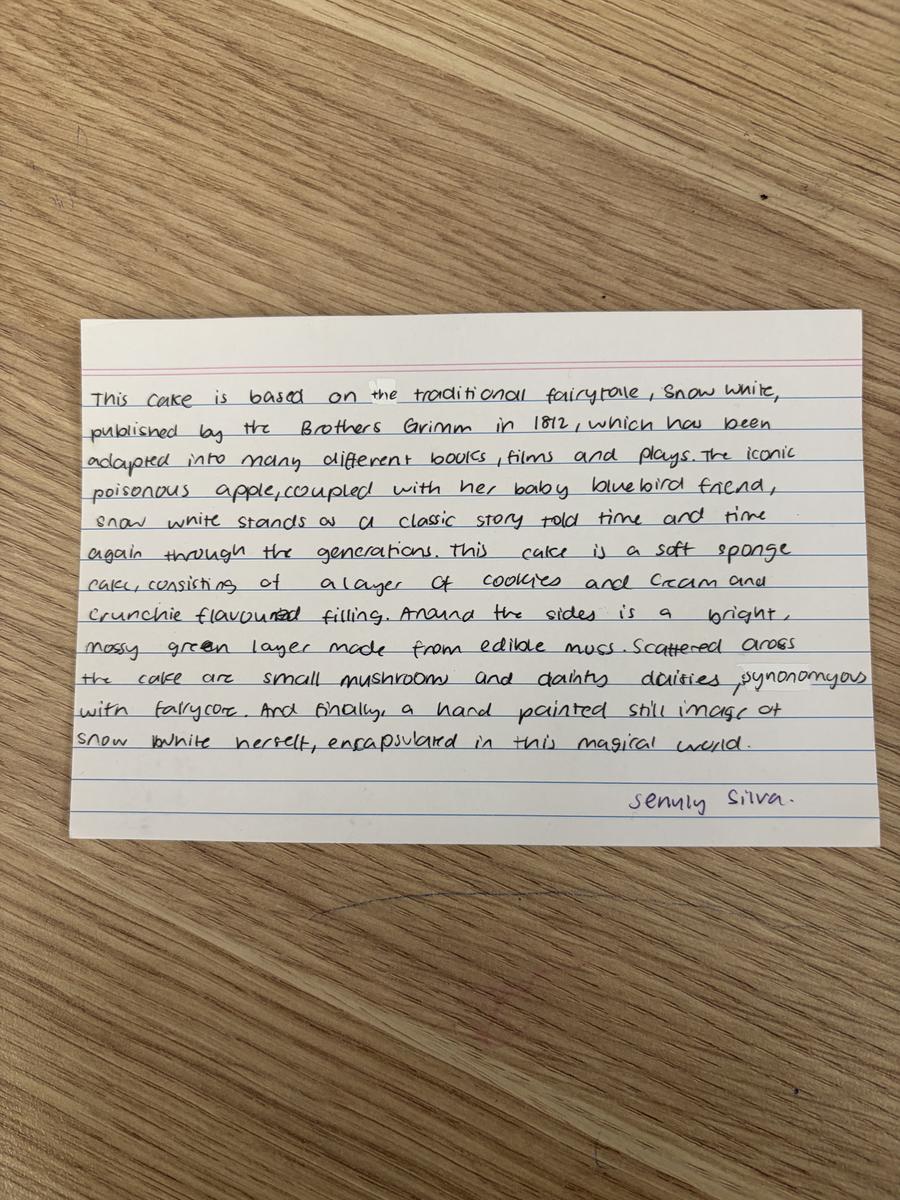 This cake is based on the traditional fairytale, Snow White,
published by the Brothers Grimm in 1812, which has been
adapted into many different books, films and plays. The iconic
poisonous apple, coupled with her baby bluebird friend,
snow white stands as a classic story told time and time
again through the generations. This cake is a soft sponge
cake, consisting of a layer of cookies and cream and
crunchie flavoured filling. Around the sides is a bright,
mossy green layer made from edible moss. Scattered aross
the cake are small mushrooms and dainty daisies, synonomyous
with fairycore. And finally, a hand painted still image of
snow White herself, encapsulated in this magical world.
Senuly Silva.